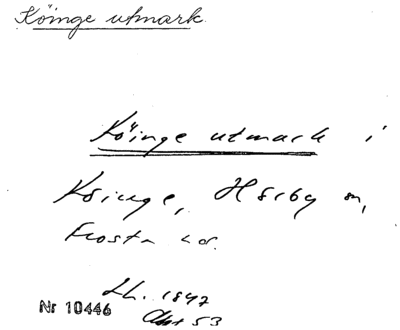 Köinge utmark.
Köinge utmark i
Köinge, Hörby sn,
Frosta hd.
Lh. 1847
Nr 10446
Akt 53